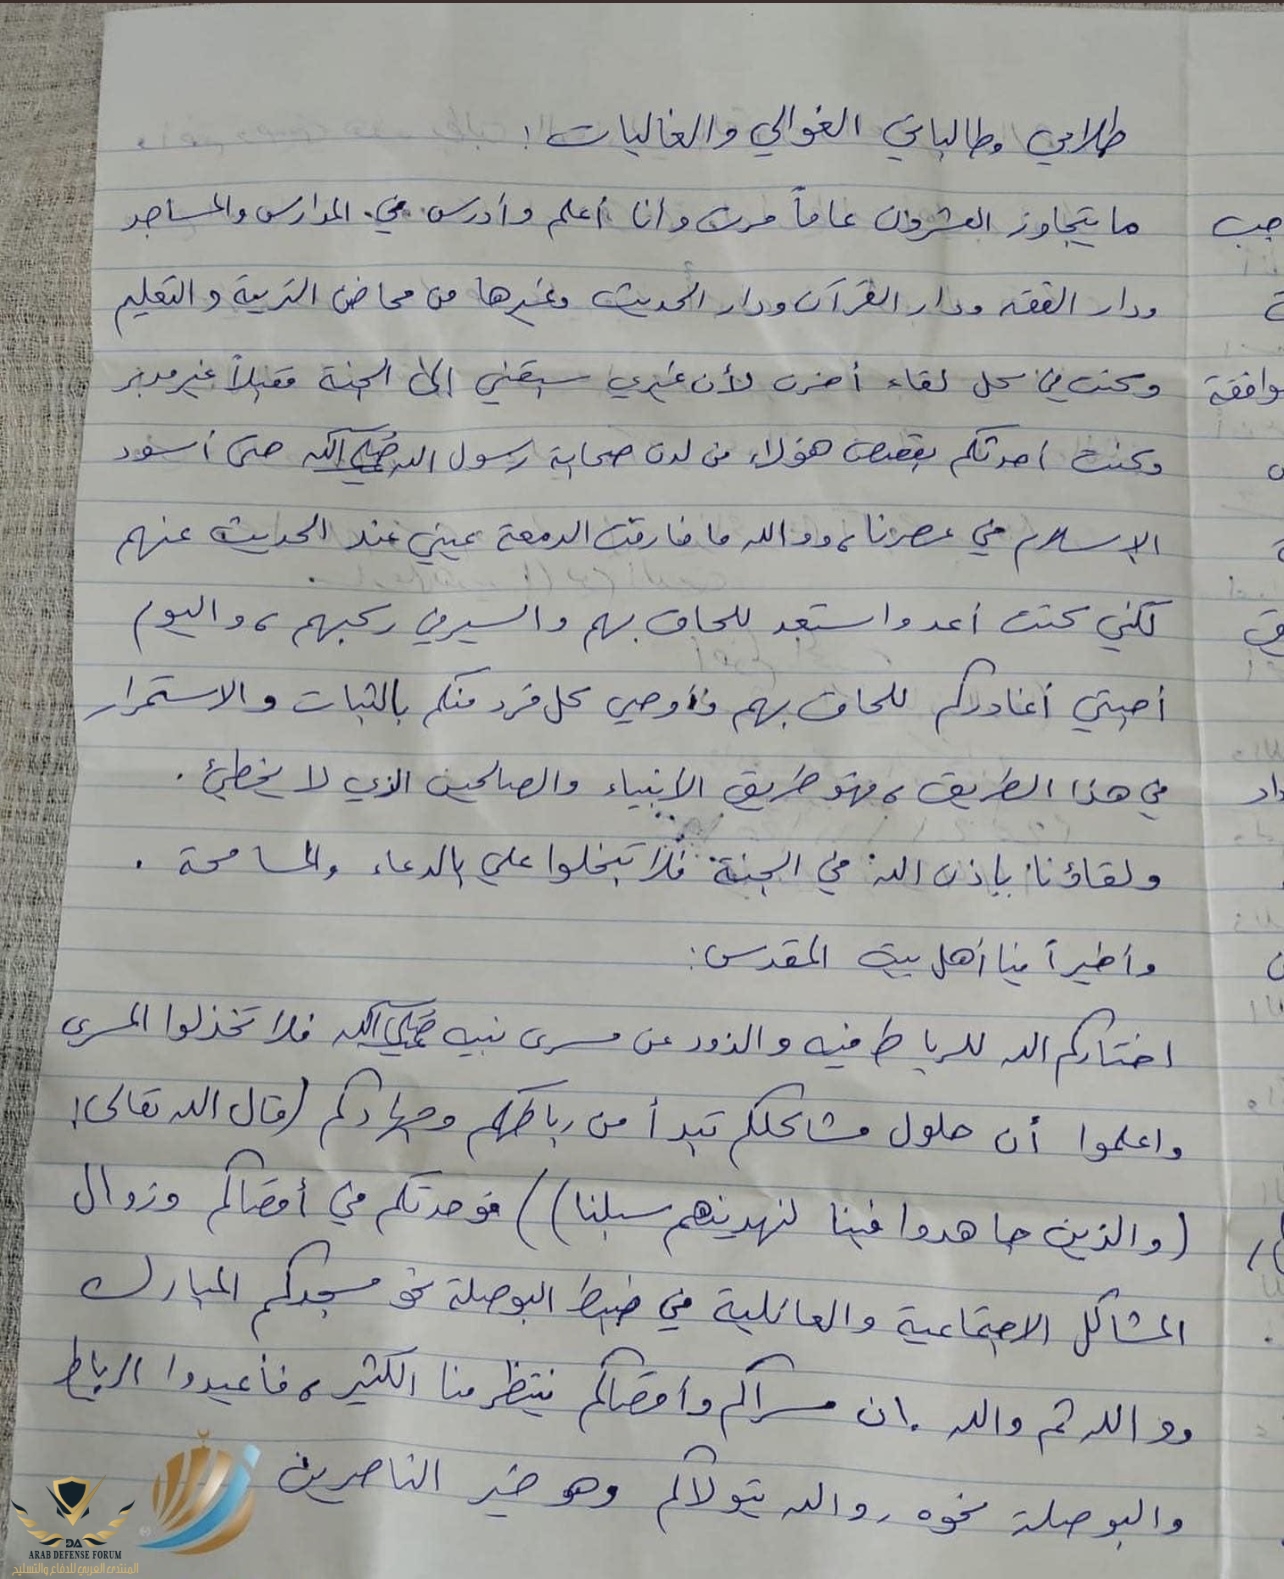 طلابي وطالباتي الغوالي والغاليات !
ما يتجاوز العشرون عاماً مرت وأنا أعلم وأدرس في المدارس والمساجد
ودار الفقه ودار القرآن ودار الحديث وغيرها من محاضن التربية والتعليم
وكنت في كل لقاء أحزن لأن غيري سبقني إلى الجنة مقبلاً غير مدبر
وكنت أحدثكم بقصص هؤلاء من لدن صحابة رسول الله ﷺ حتى أسود
الإسلام في عصرنا، ووالله ما فارقت الدمعة عيني عند الحديث عنهم
لكني كنت أعد واستعد للحاق بهم والسير في ركبهم، واليوم
أحبتي أغادركم للحاق بهم وأوصي كل فرد منكم بالثبات والاستمرار
في هذا الطريق، فهو طريق الأنبياء والصالحين الذي لا يخطئ.
ولقاؤنا بإذن الله في الجنة فلا تبخلوا علي بالدعاء والمسامحة.
وأخيراً فيا أهل بيت المقدس:
اختاركم الله للرباط فيه والذود عن مسرى نبيه ﷺ فلا تخذلوا المسرى
واعلموا أن حلول مشاكلكم تبدأ من رباطكم وجهادكم (قال الله تعالى:
(والذين جاهدوا فينا لنهدينهم سبلنا)) فوحدتكم في أقصاكم وزوال
المشاكل الاجتماعية والعائلية في ضبط البوصلة نحو مسجدكم المبارك
ووالله ثم والله إن مسراكم وأقصاكم ينتظر منا الكثير، فأعيدوا الرباط
والبوصلة نحوه، والله يتولاكم وهو خير الناصرين
DA
ARAB DEFENSE FORUM
المنتدى العربي للدفاع والتسليح